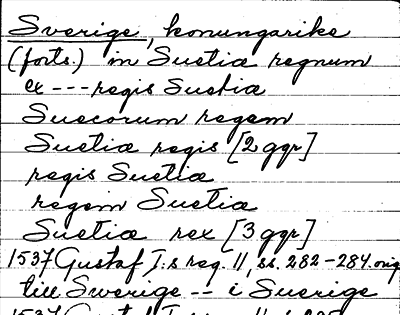 Sverige, konungarike
(forts.) in Suetiæ regnum
ex --- regis Suetiæ
Suecorum regem
Suetiæ regis [2 ggr]
regis Suetiæ
regem Suetiæ
Suetiæ rex [3 ggr]
1537 Gustaf I:s reg. 11, ss. 282-284. orig
till Swerige -- i Suerige
1537 Gustaf I:s reg. 11, s.